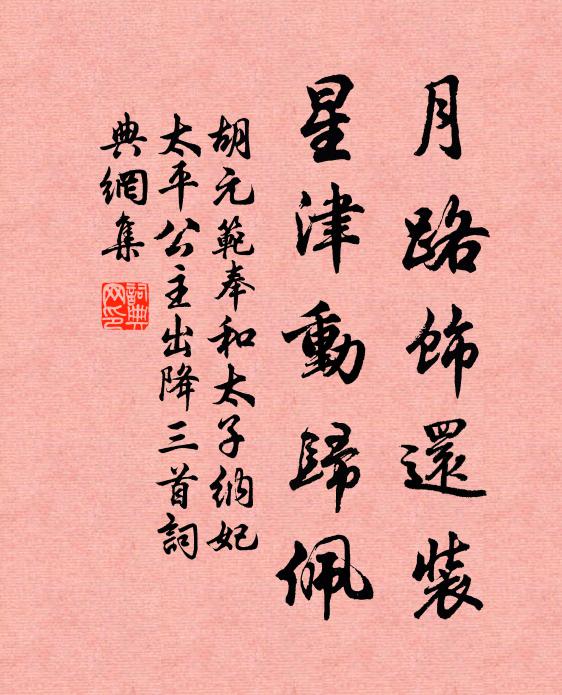 月路飾還裝
星津動歸佩
胡元範奉和太子納妃
太平公主出降三首詞
典網集
詞典網印